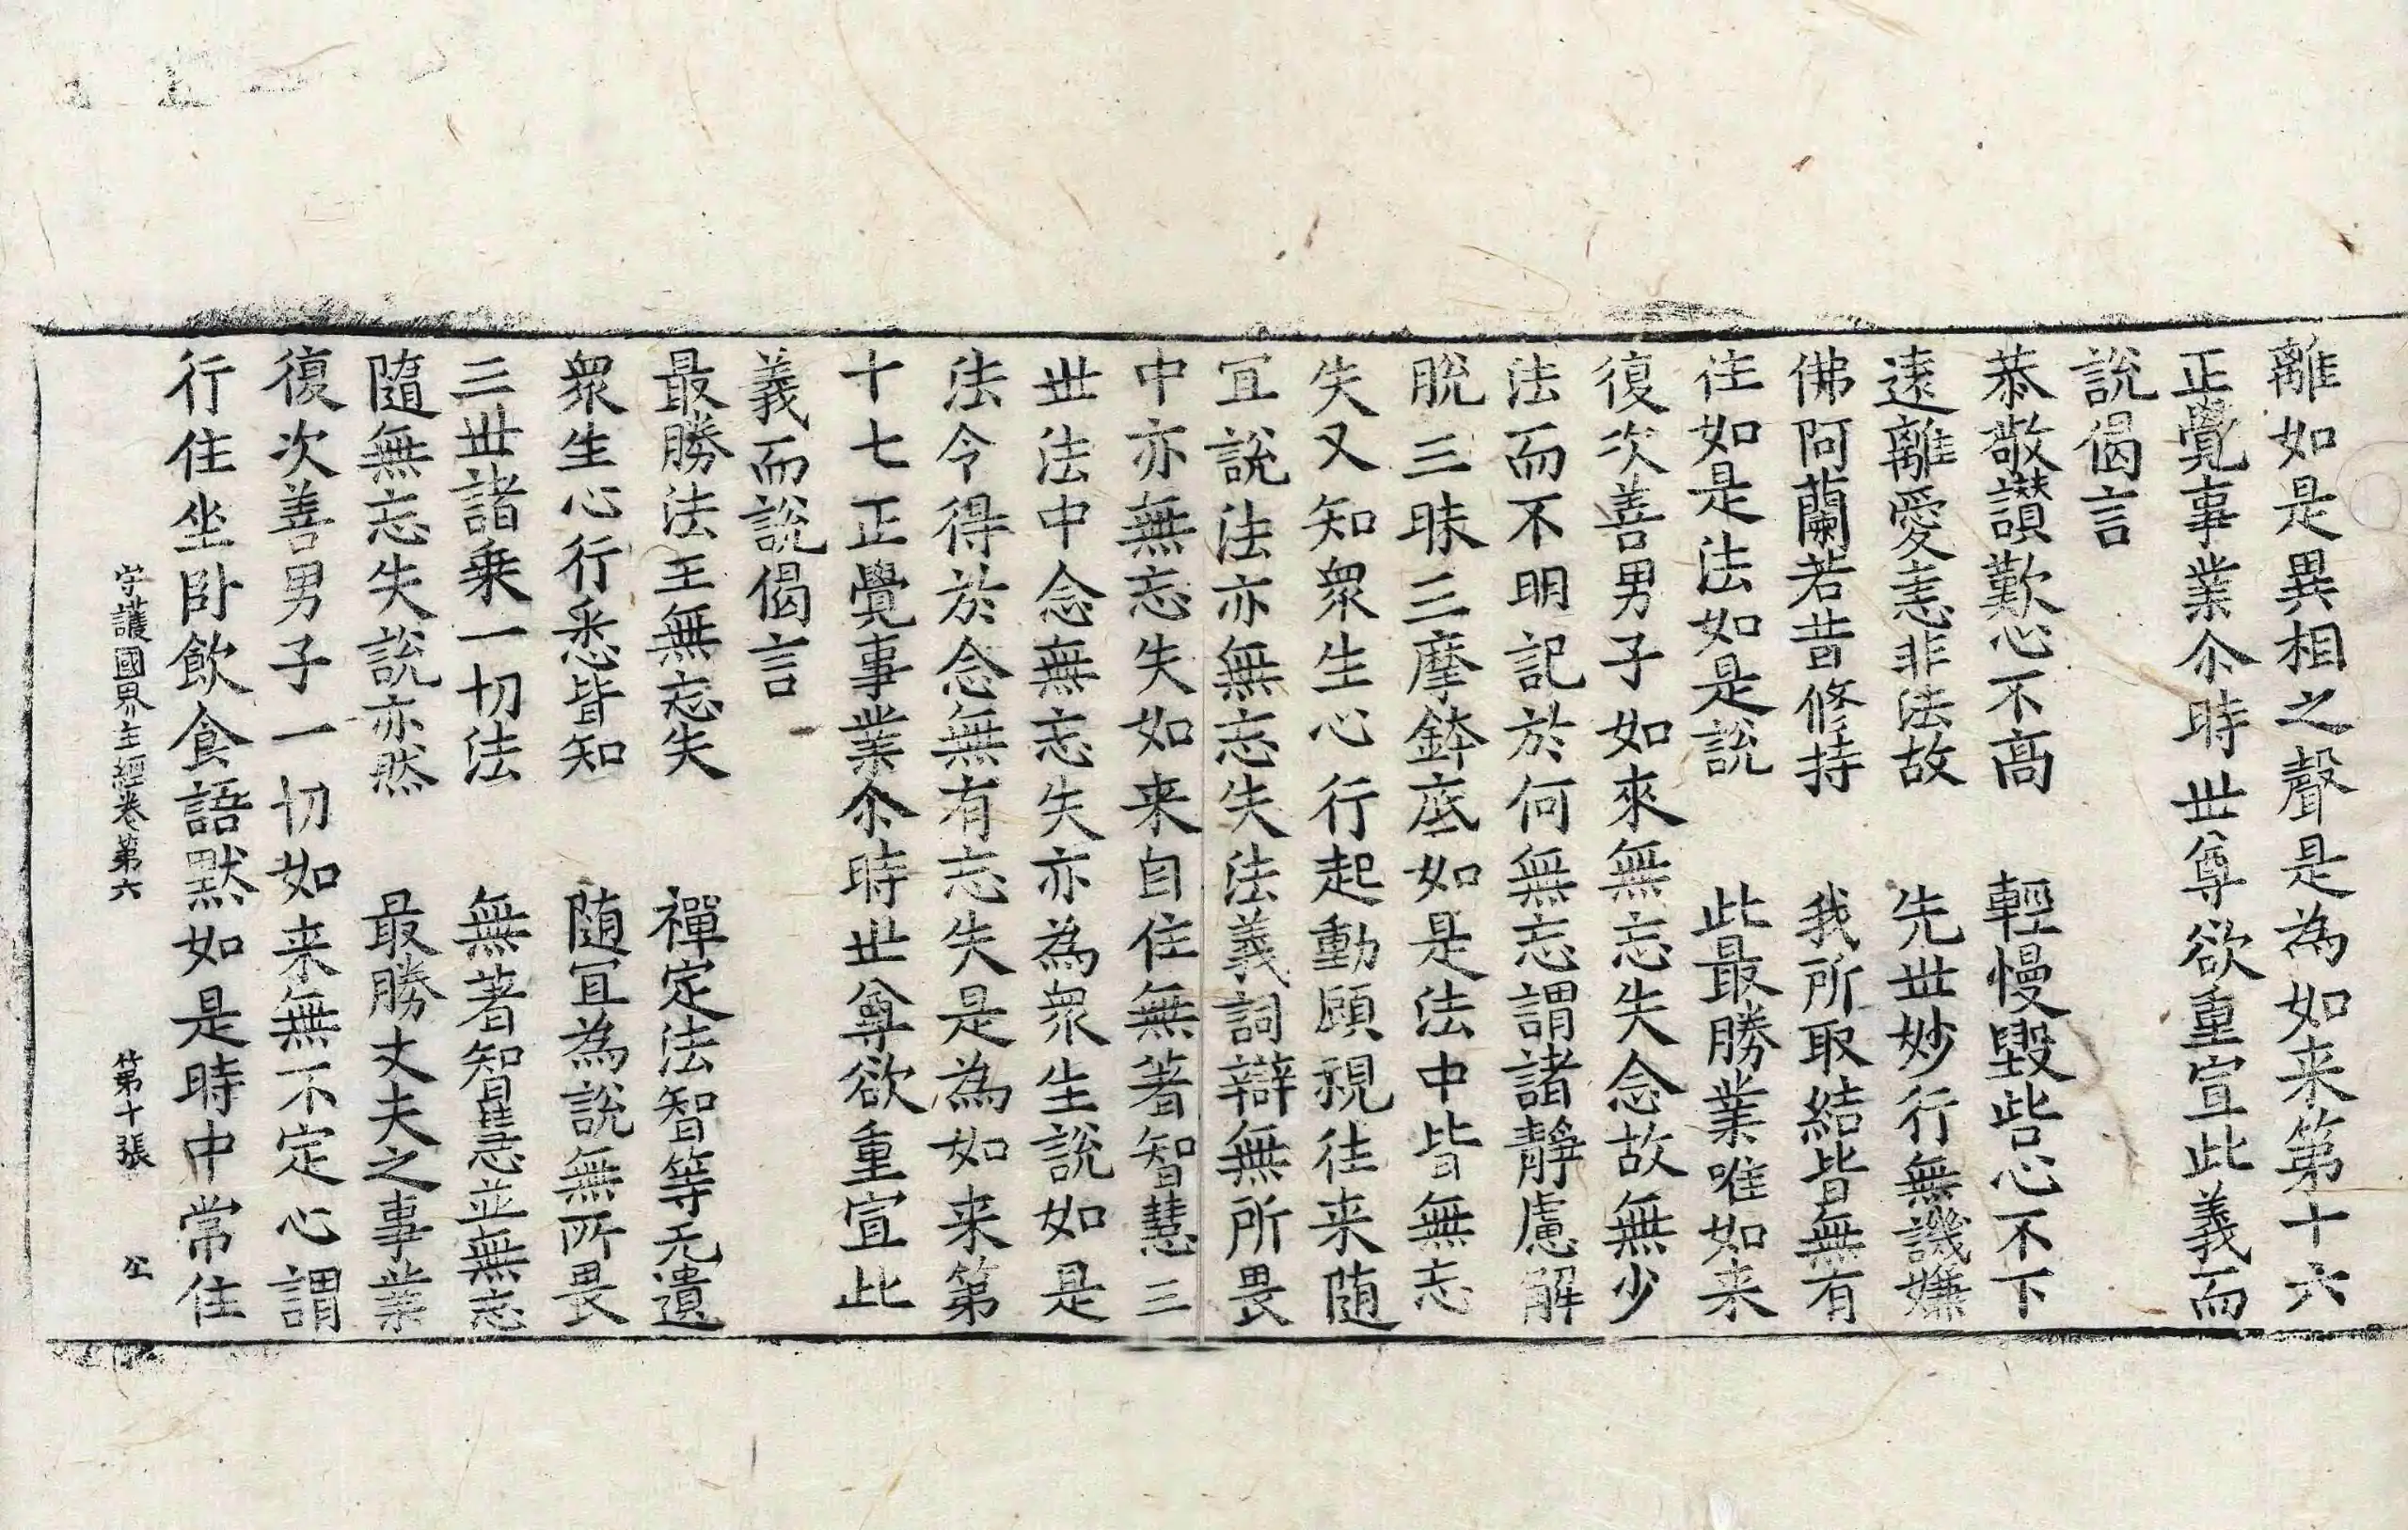 離如是異相之聲是為如来第十六
正覺事業尒時世尊欲重宣此義而
說偈言
恭敬讃歎心不高　輕慢毀呰心不下
遠離愛恚非法故　先世妙行無譏嫌
佛阿蘭若昔修持　我所取結皆無有
往如是法如是說　此最勝業唯如来
復次善男子如來無忘失念故無少
法而不明記於何無忘謂諸靜慮解
脫三昧三摩鉢底如是法中皆無忘
失又知衆生心行起動顧視往来随
宜說法亦無忘失法義詞辯無所畏
中亦無忘失如来自住無著智慧三
世法中念無忘失亦為衆生說如是
法令得於念無有忘失是為如来第
十七正覺事業尒時世尊欲重宣此
義而說偈言
最勝法王無忘失　禪定法智等无遺
衆生心行悉皆知　随宜為說無所畏
三世諸乗一切法　無著智慧並無忘
隨無忘失說亦然　最勝丈夫之事業
復次善男子一切如来無不定心謂
行住坐卧飲食語默如是時中常住
守護國界主經卷第六　第十張　公